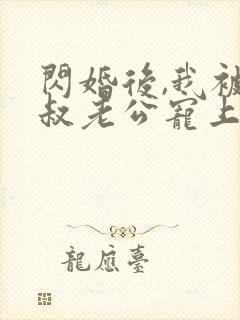 閃婚後,我被
叔老公寵上
龍應臺